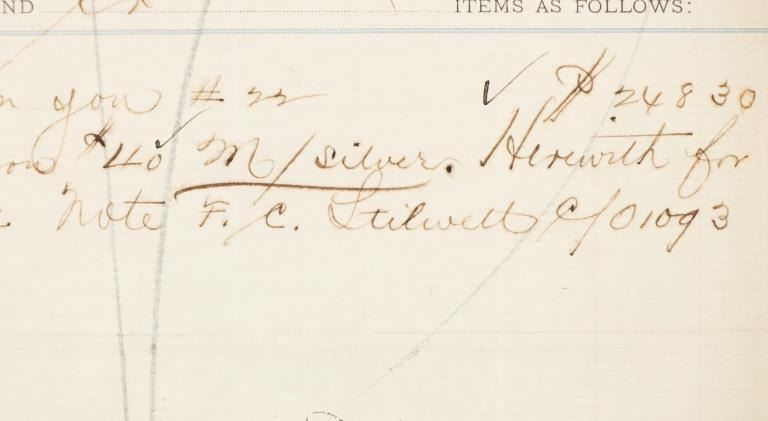 ND ITEMS AS FOLLOWS:
you # 22 $ 248 30
on $40 M/silver. Herewith for
Note F. C. Stilwell C/O 1093